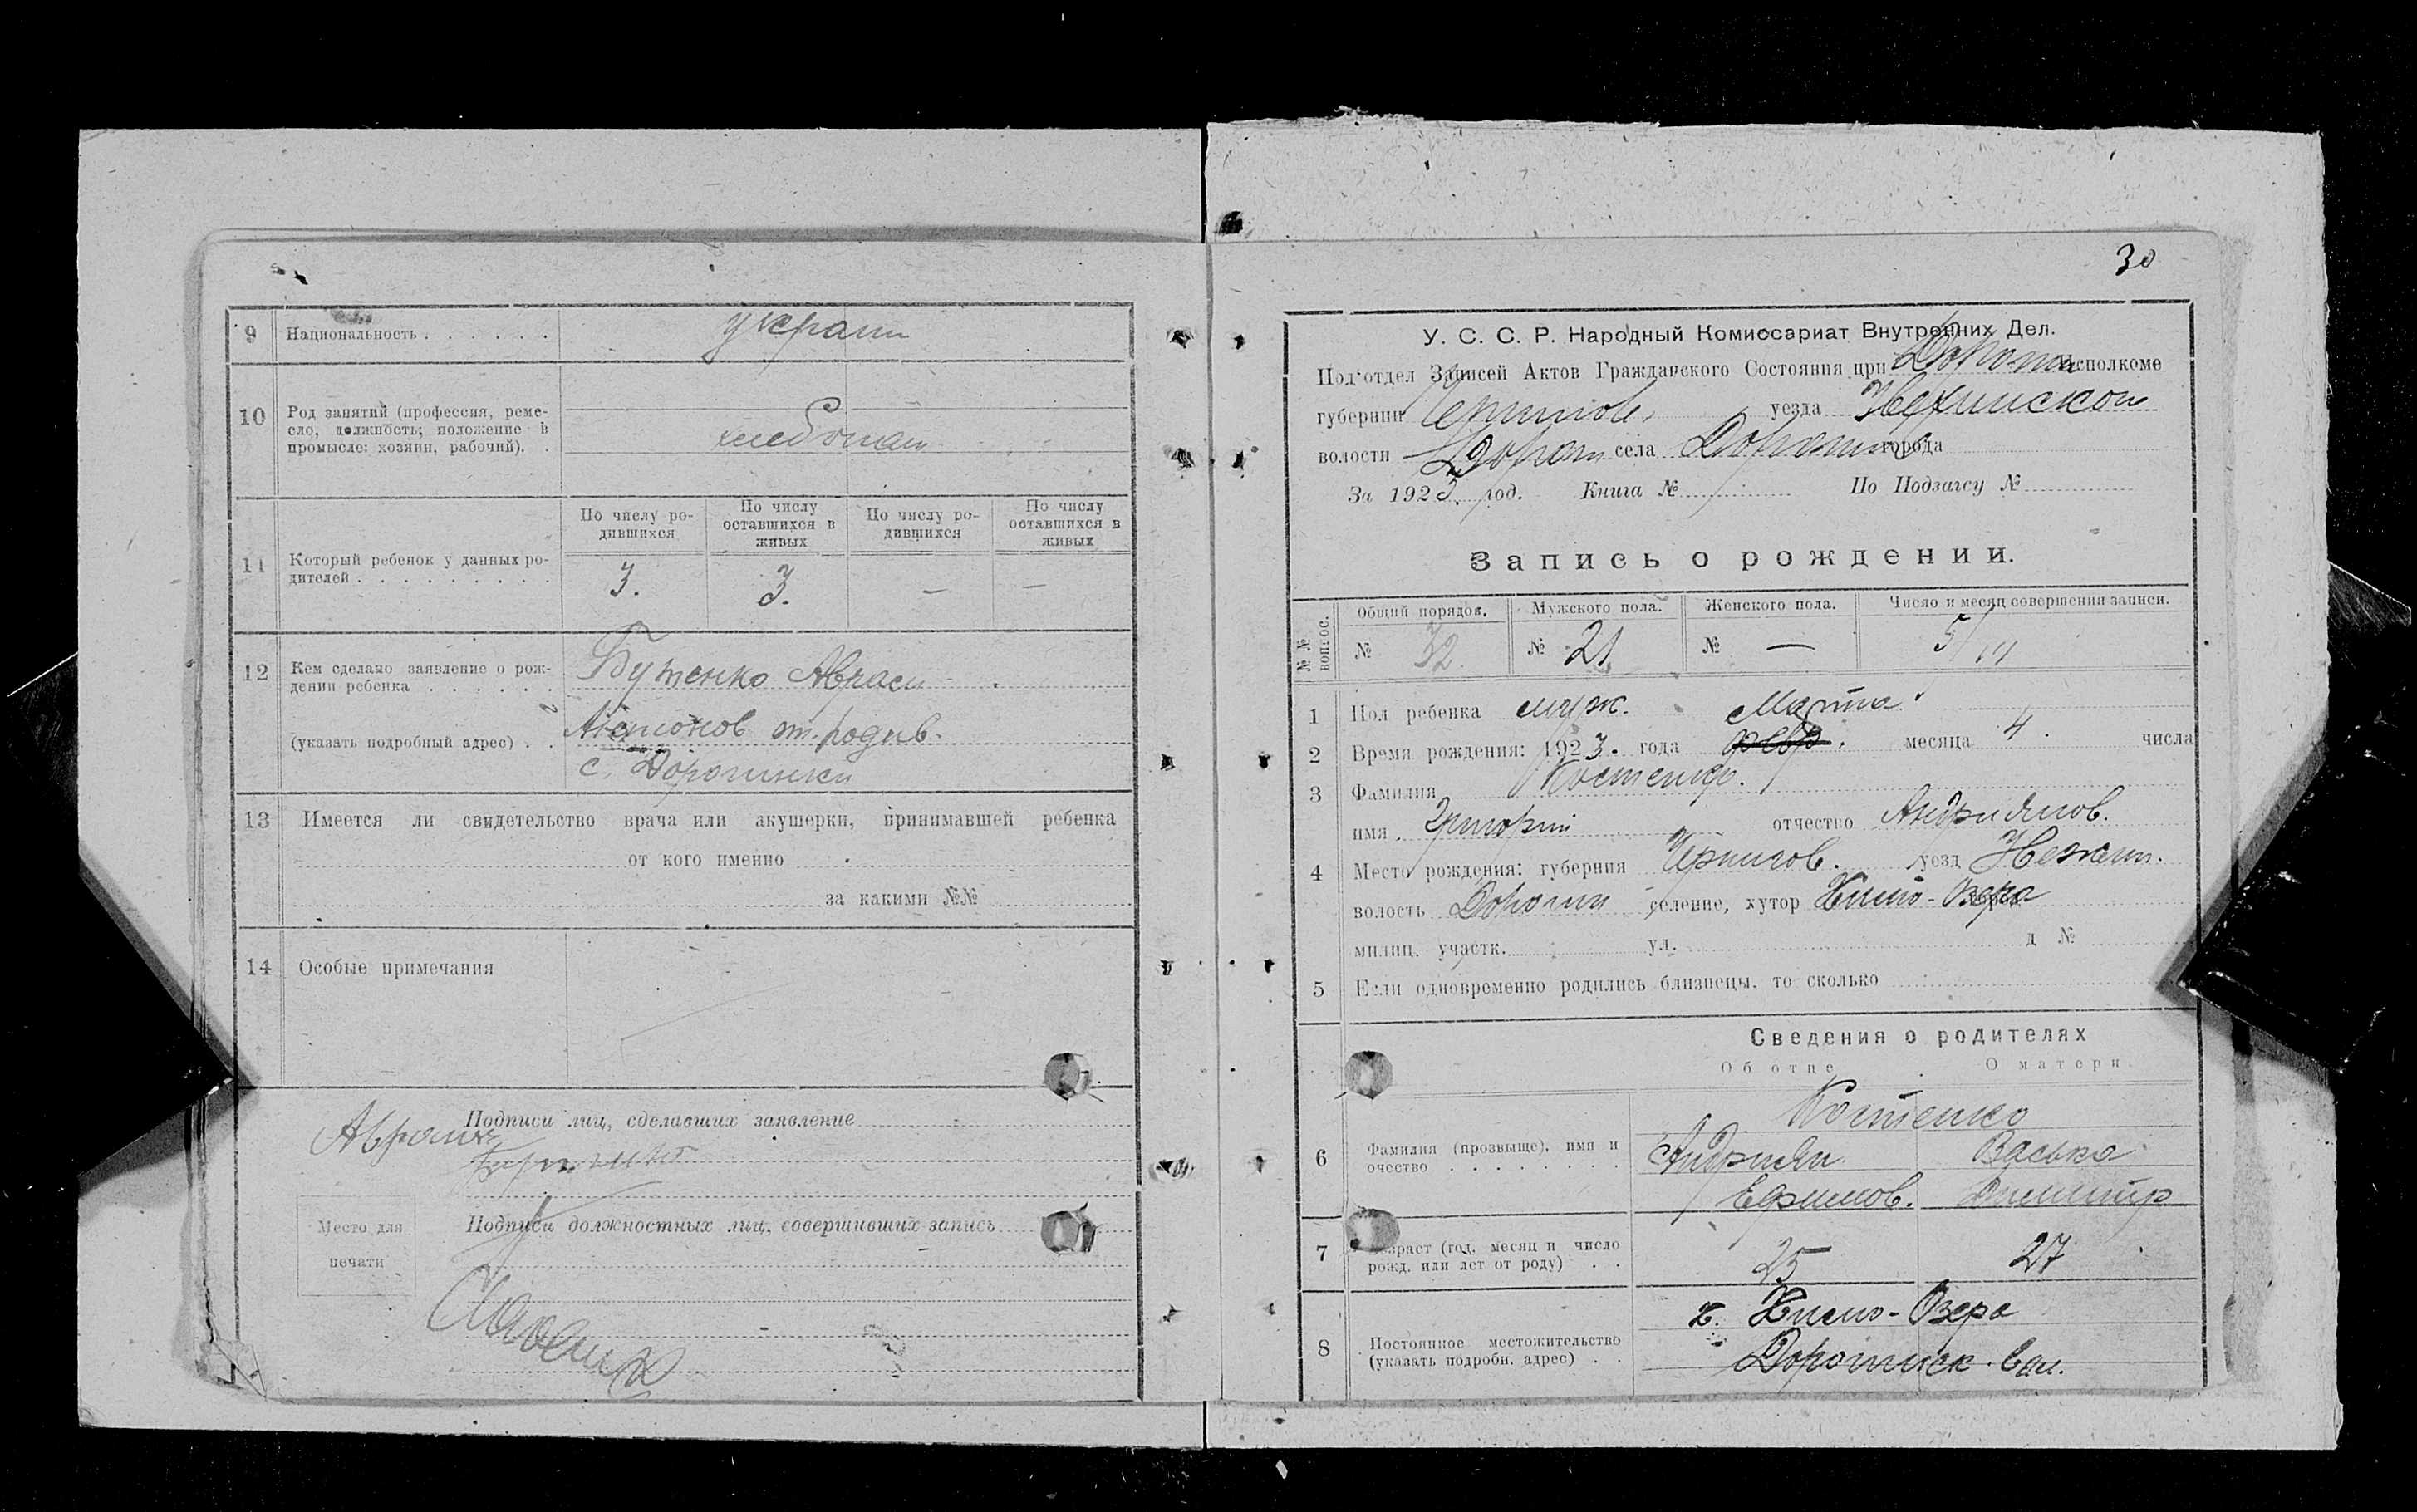 9 Национальность . . . . . . украин
10 Род занятий (профессия, реме-
сло, должность; положение в
промысле: хозяин, рабочий). .
хлебопаш
11 Который ребенок у данных ро-
дителей . . . . . . . . .
По числу ро-
дившихся
По числу
оставшихся в
живых
По числу ро-
дившихся
По числу
оставшихся в
живых
3. 3. — —
12 Кем сделано заявление о рож-
дении ребенка . . . . . .
Бутенко Аврам
(указать подробный адрес) . .
с. Дорогинки
13 Имеется ли свидетельство врача или акушерки, принимавшей ребенка
от кого именно
за какими №№
14 Особые примечания
Подписи лиц, сделавших заявление
Аврам
Место для
печати
Подписи должностных лиц, совершивших запись
30
У. С. С. Р. Народный Комиссариат Внутренних Дел.
Под‘отдел Записей Актов Гражданского Состояния при Дорогин исполкоме
губернии Чернигов. уезда Нежинской
волости Дорогин села Дорогинка города
За 1923 год. Книга № По Подзагсу №
Запись о рождении.
№ № вопрос.
Общий порядок. Мужского пола. Женского пола. Число и месяц совершения записи.
№ 32. № 21 № — 5/III
1 Пол ребенка муж. Марта
2 Время рождения: 1923. года февр. месяца 4. числа
3 Фамилия Костенко.
имя Григорий отчество Андриянов.
4 Место рождения: губерния Чернигов. уезд Нежин.
волость Дорогин селение, хутор Химо-Озера
милиц. участк. ул. д №
5 Если одновременно родились близнецы, то сколько
Сведения о родителях
Об отце О матери
6 Фамилия (прозвыще), имя и
очество . . . . . . . .
Костенко
Андриян Васька
Ефимов. Димитр
7 Возраст (год, месяц и число
рожд. или лет от роду) . .
25 27
8 Постоянное местожительство
(указать подробн. адрес) . .
х. Химо-Озера
Дорогинск. вол.